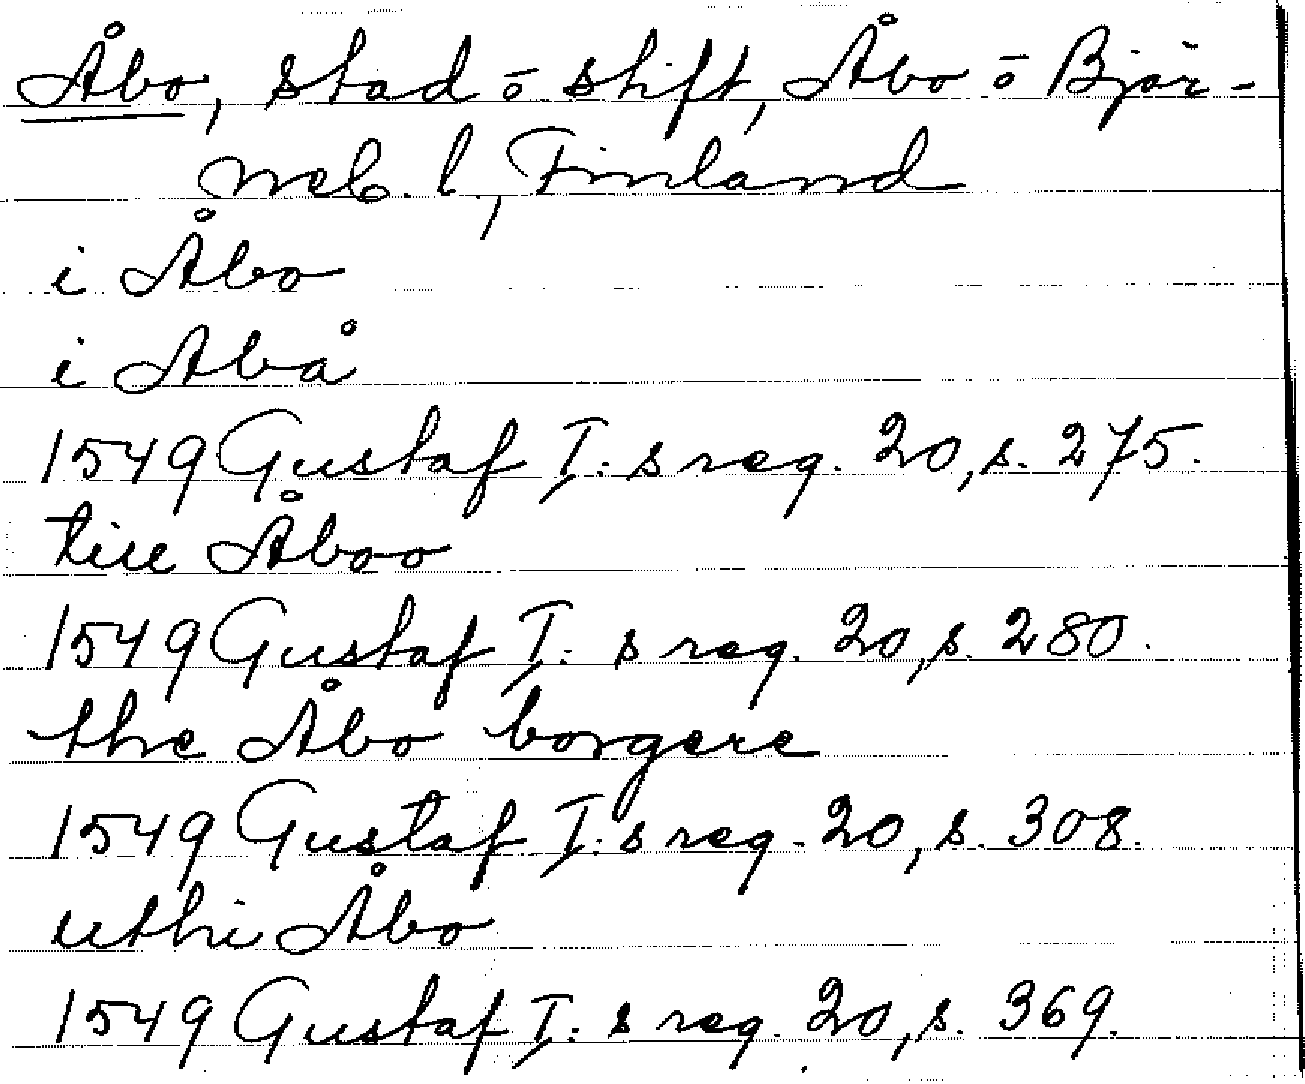 Åbo, stad ō stift, Åbo ō Björ-
neb. l., Finland
i Åbo
i Abå
1549 Gustaf I:s reg. 20, s. 275.
till Åboo
1549 Gustaf I:s reg. 20, s. 280.
the Åbo borgere
1549 Gustaf I:s reg. 20, s. 308.
uthi Åbo
1549 Gustaf I:s reg. 20, s. 369.